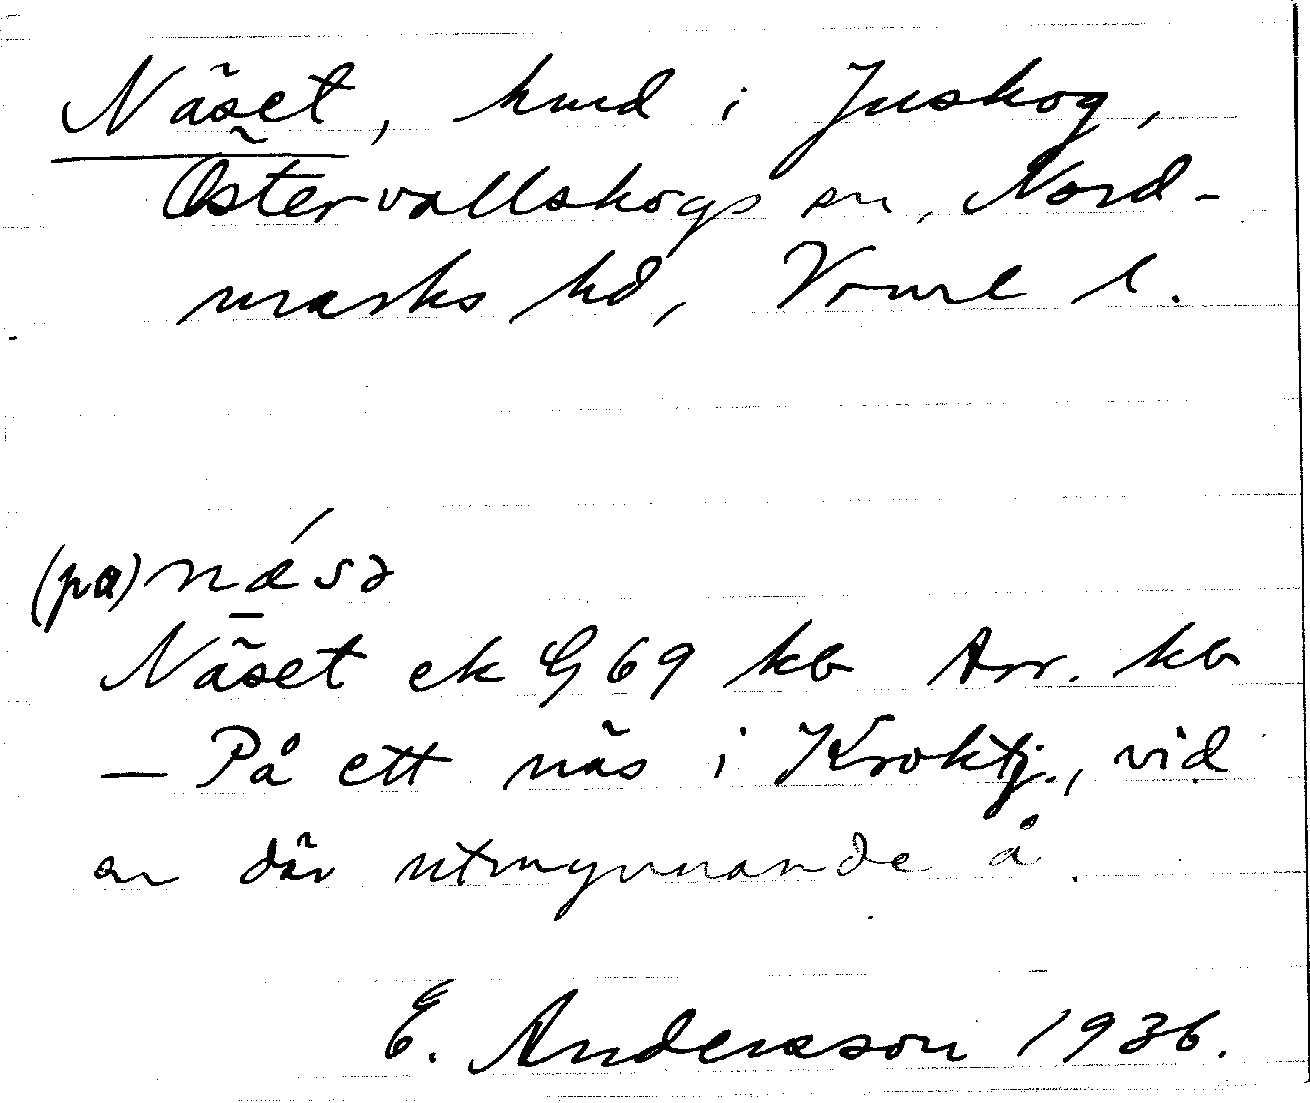 Näset, hmd i Juskog,
Östervallskogs sn, Nord-
marks hd, Vrml l.
(pa) nǽsə
Näset ek G 69 kb Arr. kb
— På ett näs i Kroktj., vid
en där utmynnande å.
E. Andersson 1936.